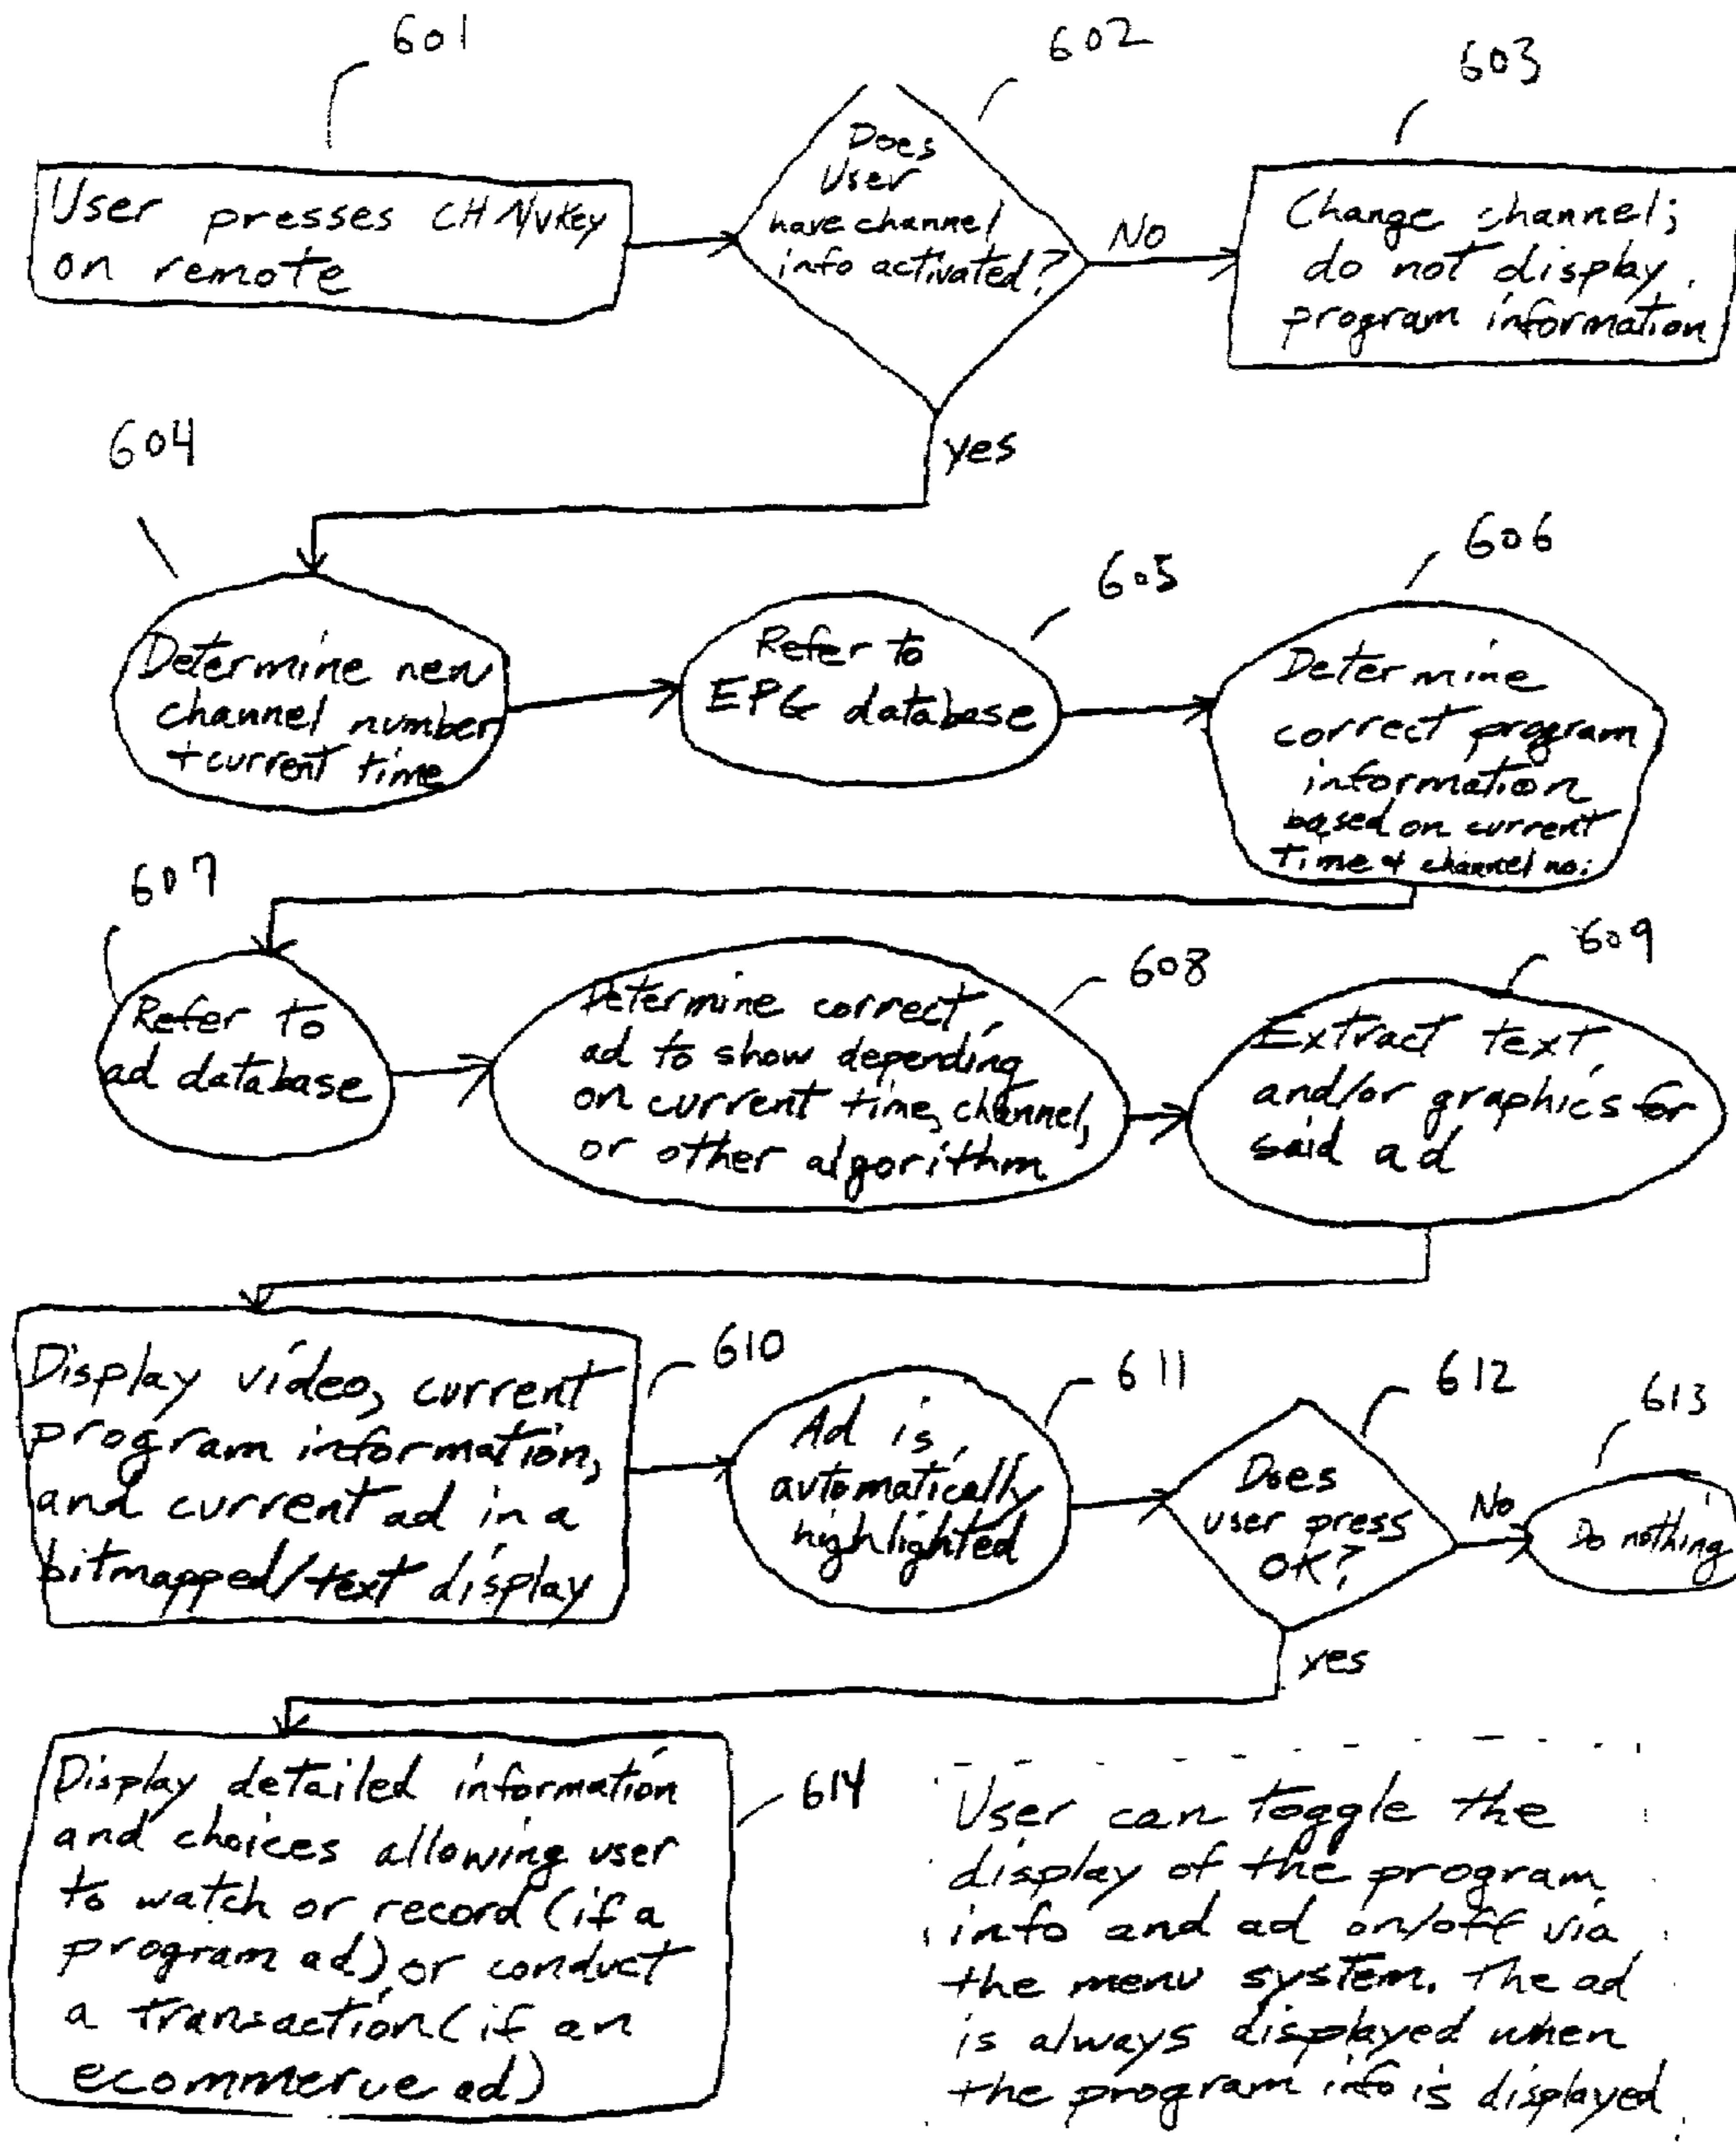 601
602
603
User presses CH ∧/∨ Key
on remote
Does
User
have channel
info activated?
No
Change channel;
do not display
program information
yes
604
605
606
Determine new
channel number
+ current time
Refer to
EPG database
Determine
correct program
information
based on current
time & channel no.
607
608
609
Refer to
ad database
Determine correct
ad to show depending
on current time, channel,
or other algorithm
Extract text
and/or graphics for
said ad
610
611
612
613
Display video, current
program information,
and current ad in a
bitmapped/text display
Ad is
automatically
highlighted
Does
user press
OK?
No
Do nothing
yes
614
Display detailed information
and choices allowing user
to watch or record (if a
program ad) or conduct
a transaction (if an
ecommerve ad)
User can toggle the
display of the program
info and ad on/off via
the menu system. The ad
is always displayed when
the program info is displayed